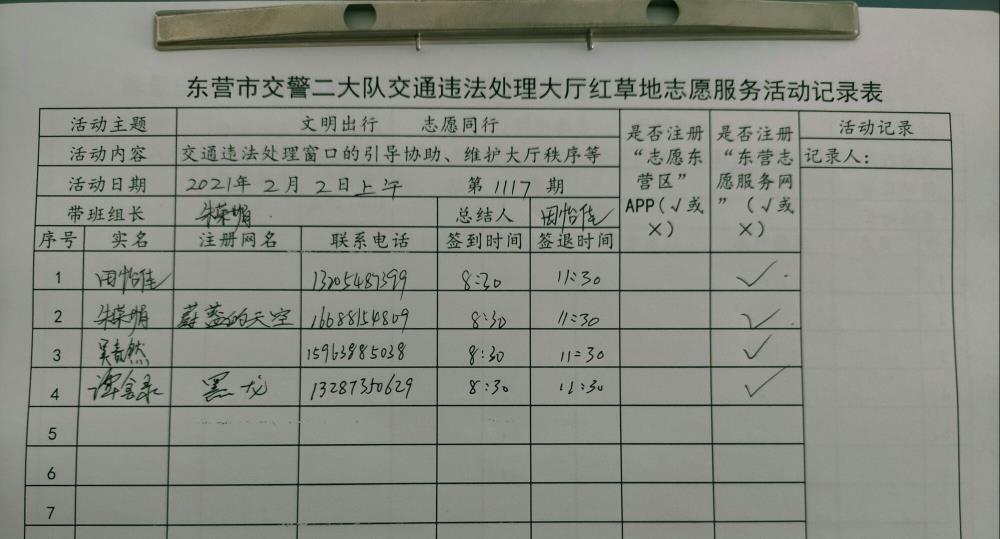 东营市交警二大队交通违法处理大厅红草地志愿服务活动记录表
活动主题 文明出行 志愿同行 是否注册“志愿东营区”APP(√或×) 是否注册“东营志愿服务网”(√或×) 活动记录
活动内容 交通违法处理窗口的引导协助、维护大厅秩序等 记录人:
活动日期 2021年2月2日上午 第1117期
带班组长 朱荣娟 总结人 田怡佳
序号 实名 注册网名 联系电话 签到时间 签退时间
1 田怡佳 13205487399 8:30 11:30 √
2 朱荣娟 蔚蓝的天空 16688154809 8:30 11:30 √
3 15963885038 8:30 11:30 √
4 黑龙 13287350629 8:30 11:30 √
5
6
7